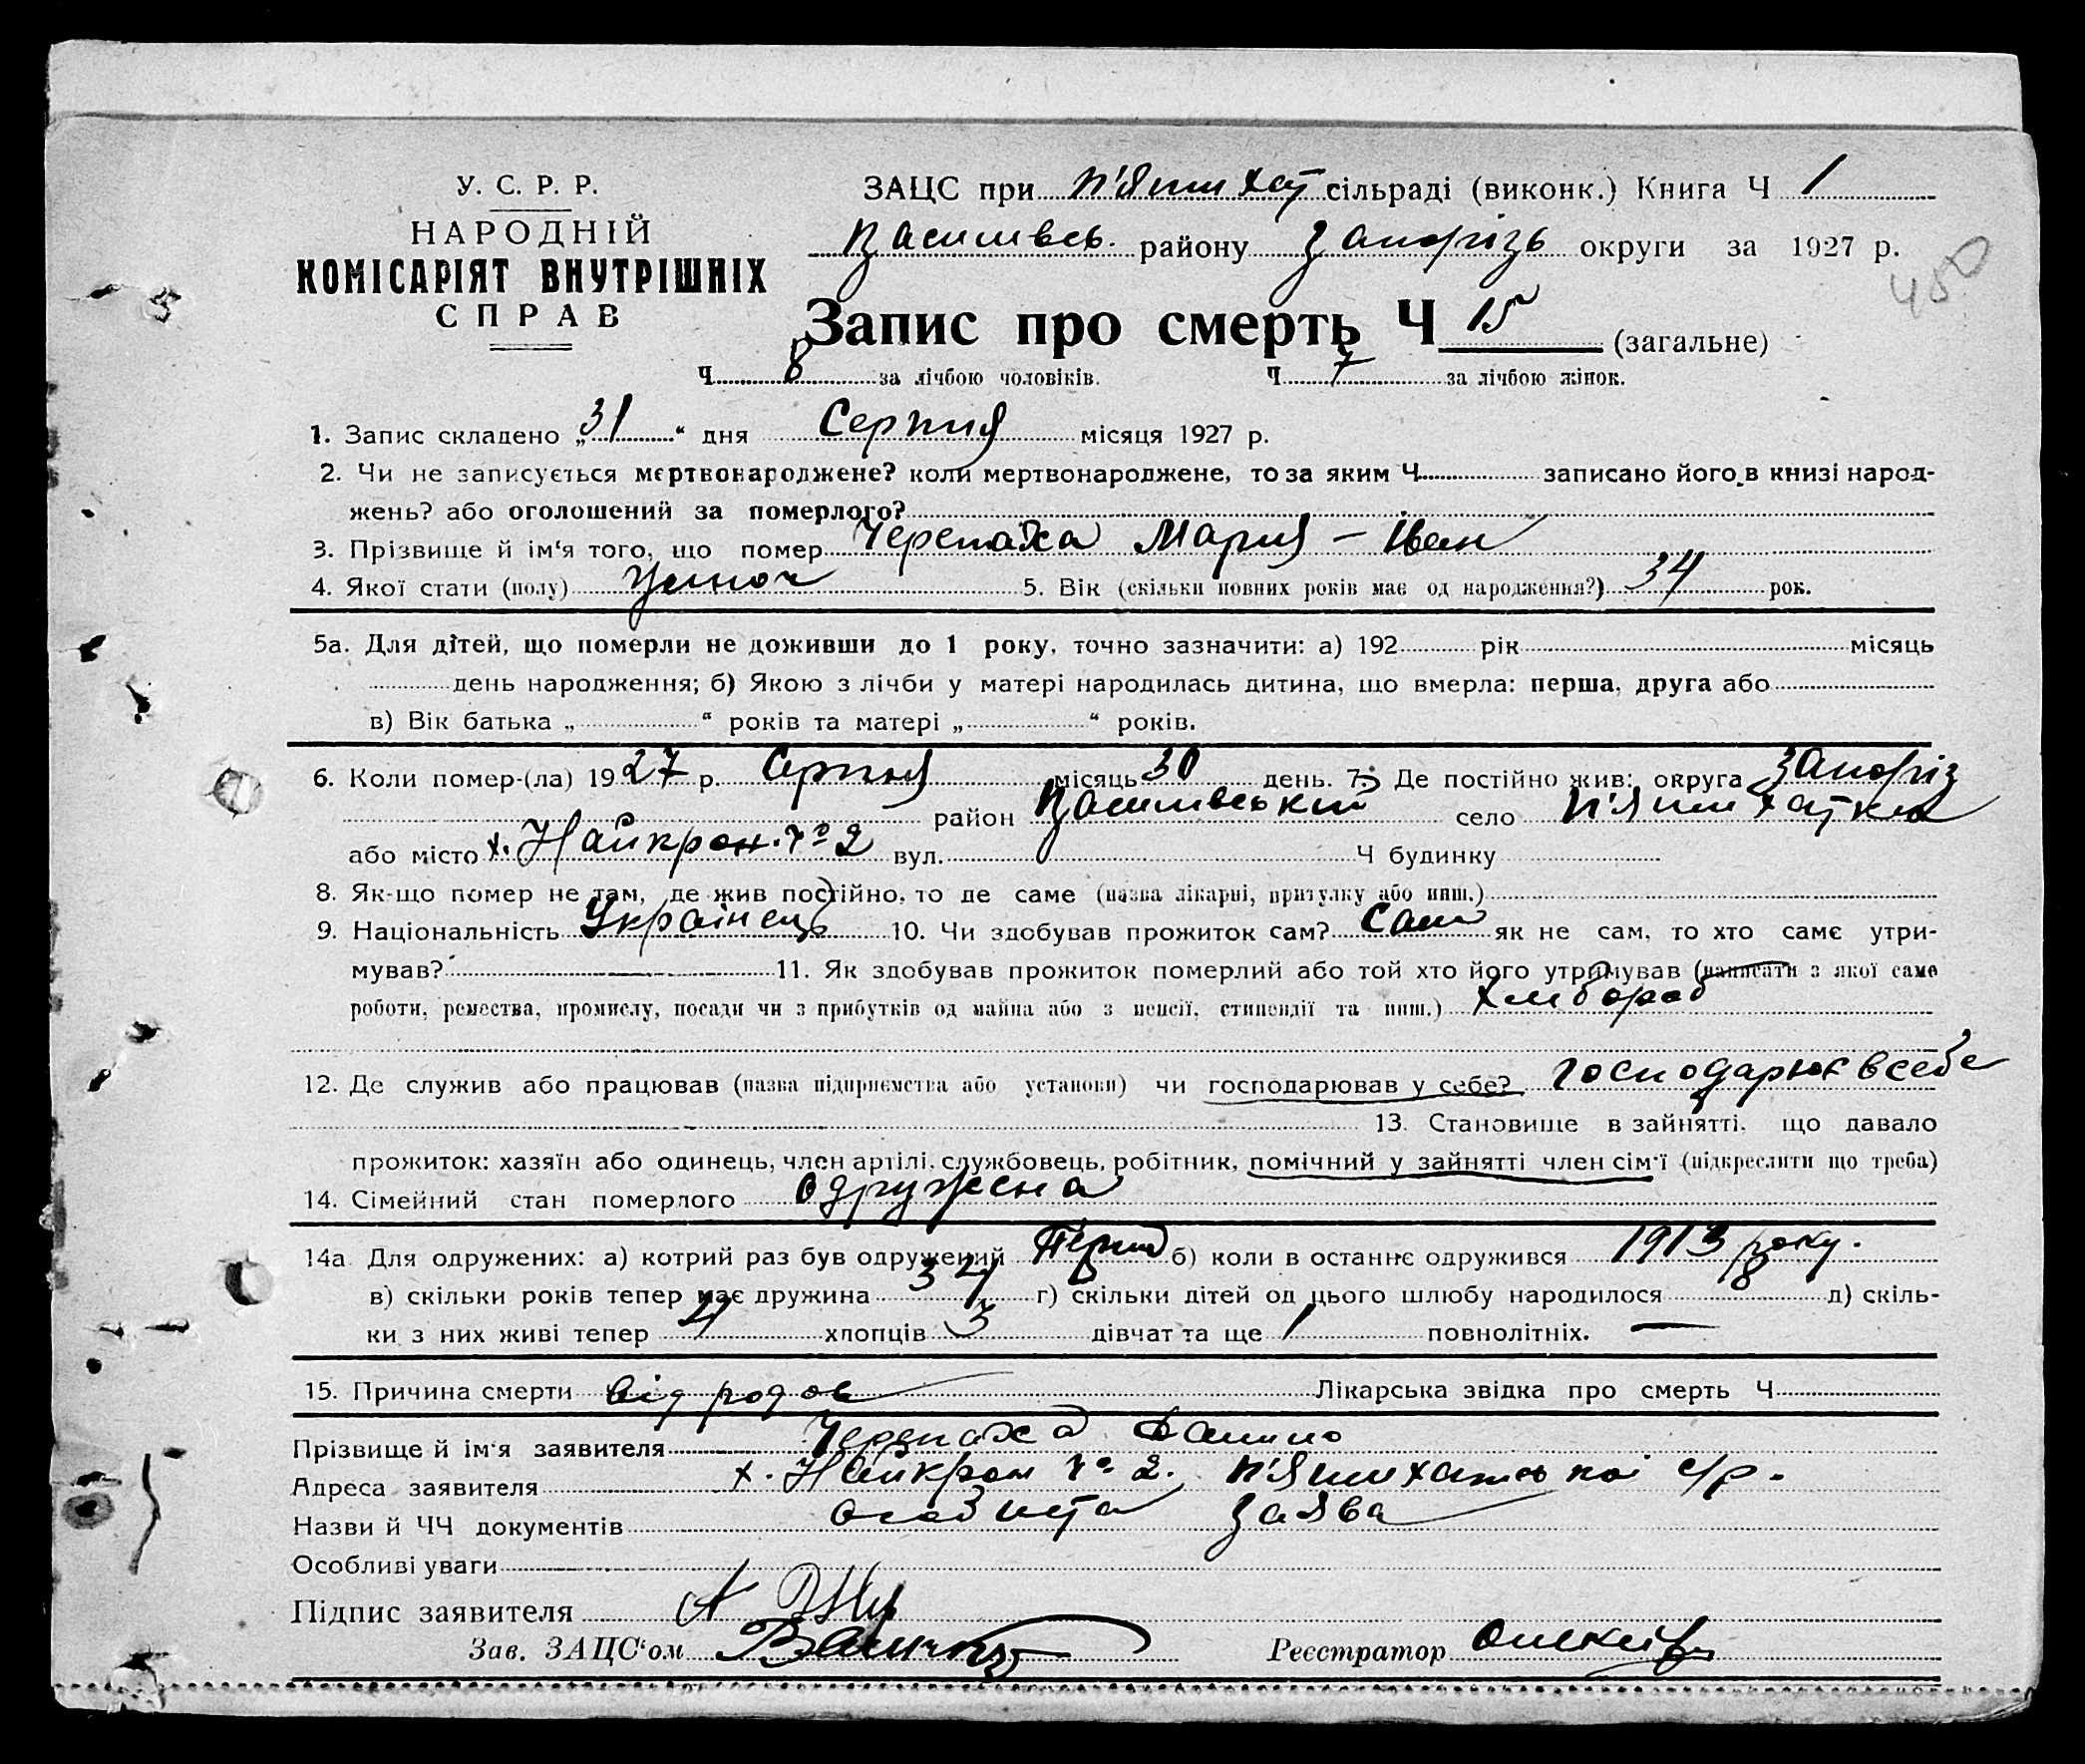 У. С. Р. Р.
НАРОДНІЙ
КОМІСАРІЯТ ВНУТРІШНІХ
СПРАВ
ЗАЦС при П'ятихат сільраді (виконк.) Книга Ч 1
Василівсь. району Запорізь округи за 1927 р.
450
Запис про смерть Ч 15 (загальне)
Ч 8 за лічбою чоловіків. Ч 7 за лічбою жінок.
1. Запис складено „31“ дня Серпня місяця 1927 р.
2. Чи не записується мертвонароджене? коли мертвонароджене, то за яким Ч записано його в книзі народ-
жень? або оголошений за померлого?
3. Прізвище й ім'я того, що помер Черепаха Мария – Іван
4. Якої стати (полу) 5. Вік (скільки повних років має од народження?) 34 рок.
5а. Для дітей, що померли не доживши до 1 року, точно зазначити: а) 192 рік місяць
день народження; б) Якою з лічби у матері народилась дитина, що вмерла: перша, друга або
в) Вік батька „ “ років та матері „ “ років.
6. Коли помер-(ла) 1927 р. Серпня місяць 30 день. 7. Де постійно жив: округа Запоріз
район Василівський село П'ятихатки
або місто х. Найкрон. № 2 вул. Ч будинку
8. Як-що помер не там, де жив постійно, то де саме (назва лікарні, притулку або инш.)
9. Національність Українець 10. Чи здобував прожиток сам? Сам як не сам, то хто саме утри-
мував? — 11. Як здобував прожиток померлий або той хто його утримував (написати з якої саме
роботи, ремества, промислу, посади чи з прибутків од майна або з пенсії, стипендії та инш.) хлібороб
12. Де служив або працював (назва підприємства або установи) чи господарював у себе? господарює в себе
13. Становище в зайнятті, що давало
прожиток: хазяїн або одинець, член артілі, службовець, робітник, помічний у зайнятті член сім'ї (підкреслити що треба)
14. Сімейний стан померлого одружена
14а Для одружених: а) котрий раз був одружений Перший б) коли в останнє одружився 1913 року.
в) скільки років тепер має дружина 34 г) скільки дітей од цього шлюбу народилося 8 д) скіль-
ки з них живі тепер 4 хлопців 3 дівчат та ще 1 повнолітніх. —
15. Причина смерти від родов Лікарська звідка про смерть Ч
Прізвище й ім'я заявителя Черепаха Данило
Адреса заявителя х. Найкрон № 2. П'ятихатської с/р.
Назви й ЧЧ документів особиста заява
Особливі уваги
Підпис заявителя
Зав. ЗАЦС'ом Реєстратор